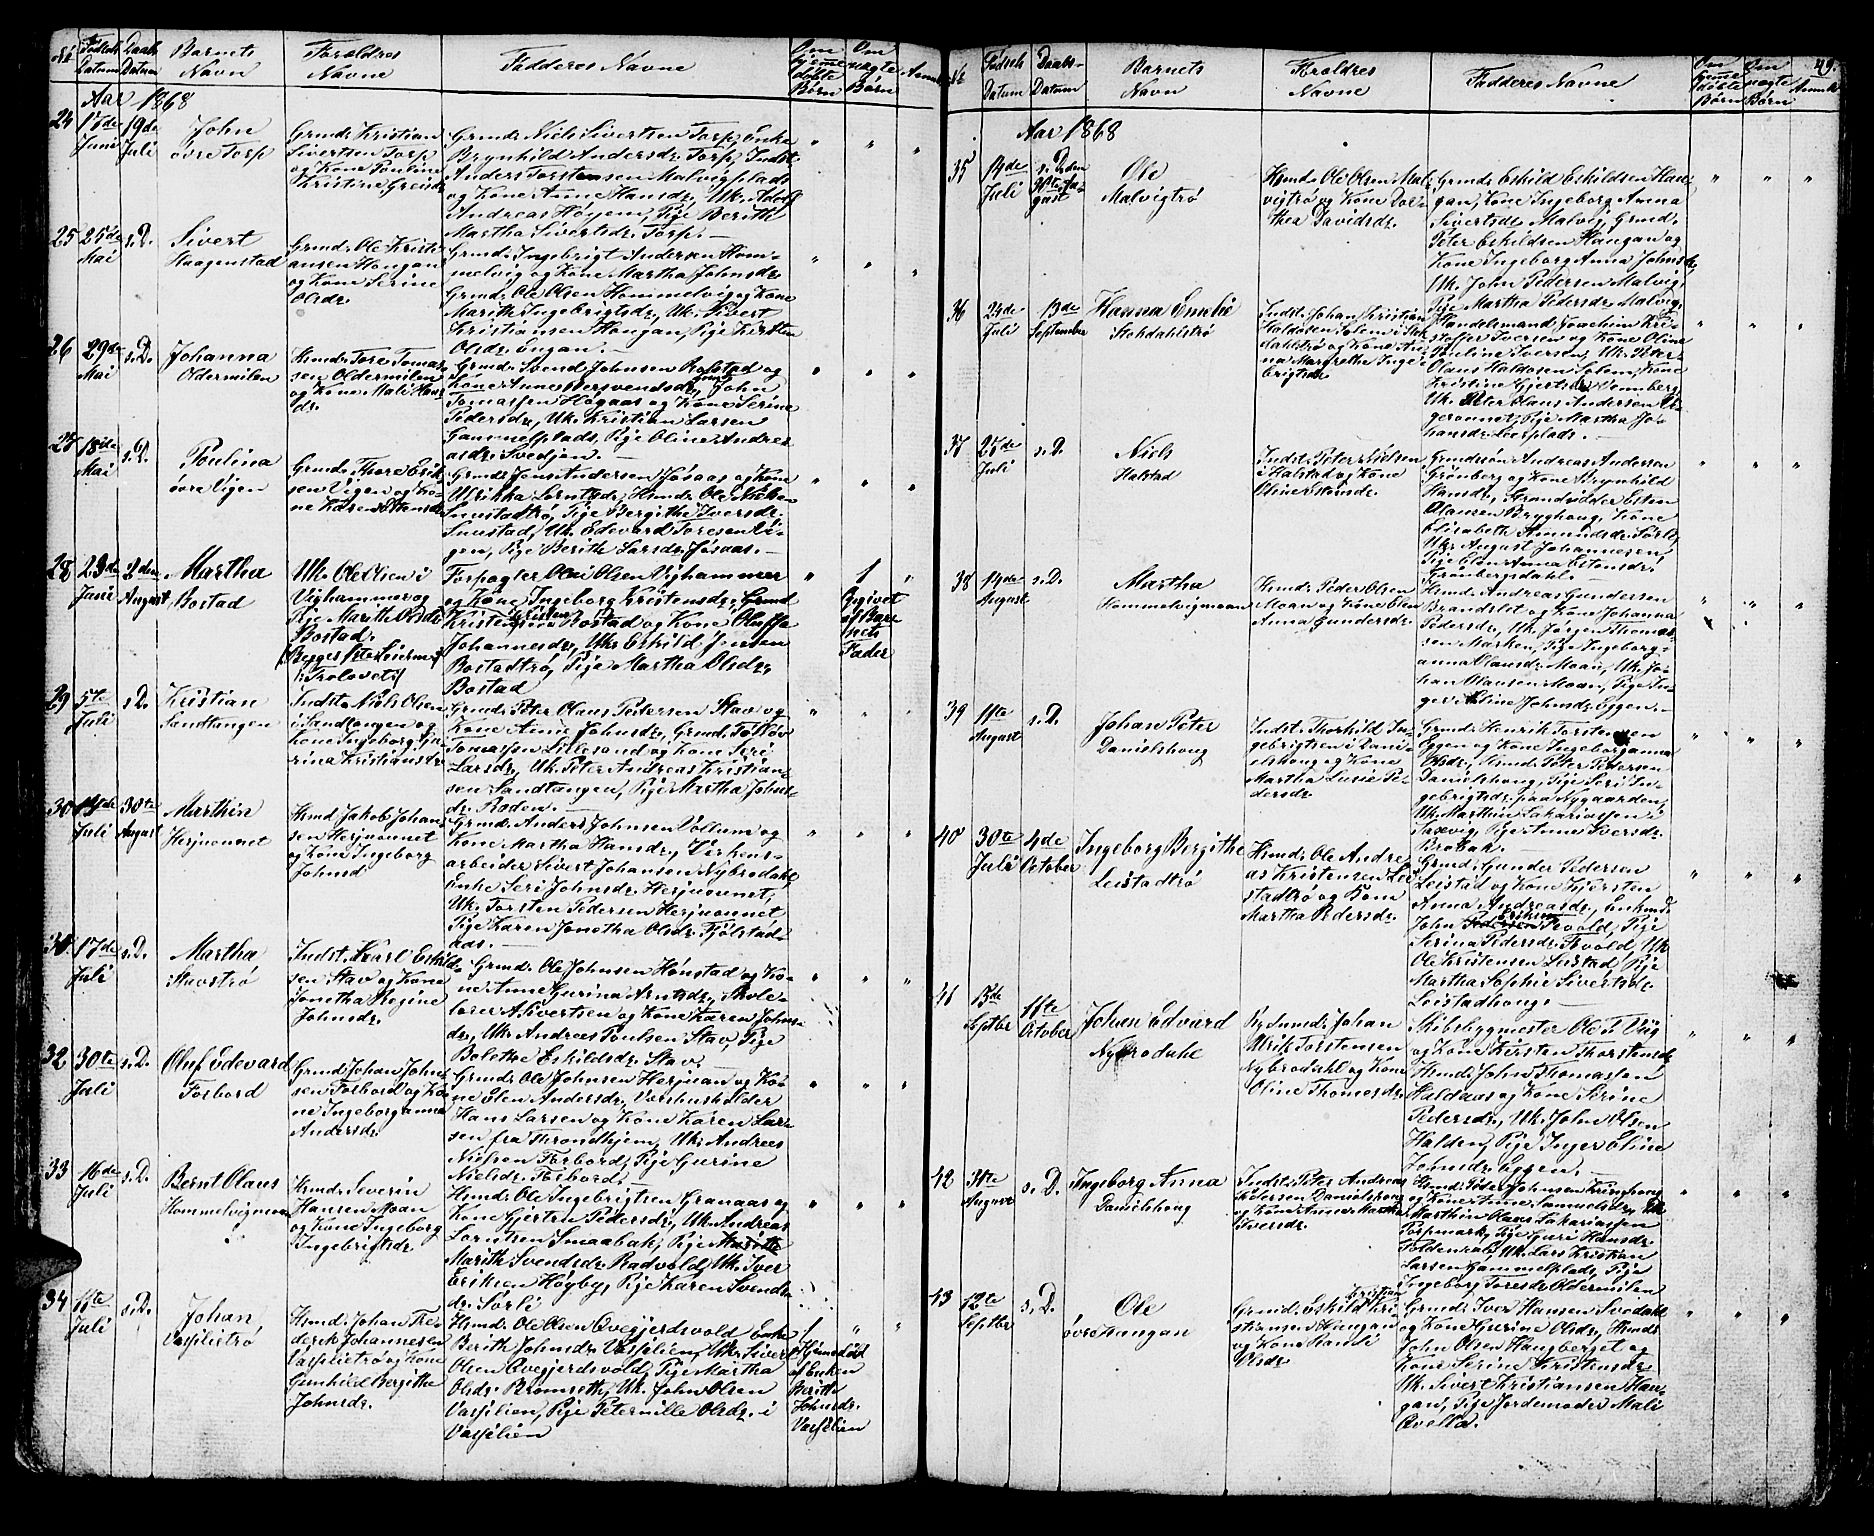 No. Fødsels Datum Daabs Datum Barnets Navn Forældres Navne Faddernes Navne Om hjemme døbte Børn Om uægte Børn Anmerk
Aar 1868
24 17de Juni 19de Juli John øvre Torp
Grmd. Kristian
Sivertsen Torp
og Kone Pauline
Kristine Greisdr.
Grmd. Niels Sivertsen Torp, Enke
Brynhild Andersdr. Torp, Indst.
Anders Torstensen Malvigplads
og Kone Anne Hansdr., Uk. Adolf
Andreas Høyem, Pige Berithe
Martha Sivertsdr. Torp.
25 25de Mai s.D. Sivert Haagenstad
Grmd. Ole Kristi-
ansen Hougan
og Kone Serine
Olsdr.
Grmd. Ingebrigt Andersen Hom-
melvig og Kone Martha Johnsdr.
Grmd. Ole Olsen Hommelvig og Kone
Marith Ingebrigtsdr., Uk. Sivert
Kristiansen Haugan, Pige Kirsten
Olsdr. Engan.
26 29de Mai s.D. Johanna Oldermilen
Hmd. Tore Tomas-
sen Oldermilen
og Kone Mali Han-
sdr.
Grmd. Svend Johnsen Rofstad og
Kone Anne Svendsdr., John
Tomassen Høgaas og Kone Serine
Pedersdr., Uk. Kristian Larsen
Gammelplads, Pige Oline Andre-
asdr. Svedjan.
27 18de Mai s.D. Poulina øvre Vigen
Grmd. Thore Erik-
sen Vigen og Ko-
ne Karen Hansdr.
Grmd. Jon Andersen Jøsaas og Kone
Ulrikka Lorntsdr., Hmd. Ole Nielsen
Saustadtrø, Pige Bergithe Iversdr.
Saustad, Uk. Edevard Toresen Vi-
gen, Pige Berith Larsdr. Jøsaas.
28 23de Juni 2den August Martha Bostad
Uk. Ole Olsen i
Vighammer og
Pige Marith Olsdr.
Bostad.
(Begges 1ste Leiermaal)
(Trolovet)
Forpagter Ole Olsen Vighammer
og Kone Ingeborg Kristensdr., Grmd.
Kristen Bostad og Kone Oluffa
Johannesdr., Uk. Eskild Jensen
Bostadtrø, Pige Martha Olsdr.
Bostad
1 Opgivet af Barnets Fader
29 5te Juli s.D. Kristian Sandtangen
Indst. Niels Olsen
i Sandtangen og
Kone Ingeborg Gu-
rina Kristiansdr.
Grmd. Peter Olaus Pedersen Stav og
Kone Anne Johnsdr., Grmd.
Tomassen Lillesand og Kone Seri
Larsdr., Uk. Peter Andreas Kristian-
sen Sandtangen, Pige Martha Johns-
dr. Roden.
30 19de Juli 30te August Marthin Herjuaunet
Hmd. Jakob Johan-
sen Herjuaunet
og Kone Ingeborg
Johnsd.
Grmd. Anders Johnsen Vollum og
Kone Martha Hansdr., Verkens-
arbeider Sivert Johansen Nybrodahl,
Enke Seri Johnsdr. Herjuaunet,
Uk. Torsten Pedersen Herjuaunet
Pige Karen Jonetha Olsdr. Fjølstad-
aas.
31. 17de Juli s.D. Martha Stavstrø
Indst. Karl Eskild-
sen Stav og Kone
Jonetha Regine
Johnsdr.
Grmd. Ole Johnsen Hønstad og Ko-
ne Anne Gurina Arntsdr., Skole-
lærer A. Sivertsen og Kone Karen Johns-
dr., Uk. Andreas Poulsen Stav, Pige
Bolethe Eskildsdr. Stav.
32 30te Juli s.D. Oluf Edevard Forbord
Grmd. Johan John-
sen Forbord og Ko-
ne Ingeborganna
Andersdr.
Grmd. Ole Johnsen Herjuan og Ko-
ne Elen Andersdr., Værtshusholder
Hans Larsen og Kone Karen Lar-
sen fra Throndhjem, Uk. Andreas
Nielsen Forbord, Pige Gurine
Nielsdr. Forbord.
33 16de Juli s.D. Bernt Olaus Hommelvigmoen
Hmd. Severin
Hansen Moan
og Kone Ingeborg
Ingebrigtsdr.
Hmd. Ole Ingebrigtsen Granaas og
Kone Gjertru Pedersdr., Uk. Andreas
Lorntsen Smaabak, Pige
Marith Svendsdr. Radvold, Uk. Iver
Eriksen Høyby, Pige Karen Svends-
dr. Sørli
34 11te Juli s.D. Johan Vasjelietrø
Hmd. Johan Fre-
derik Johannesen
Vasjelietrø og Kone
Gunhild Bergitha
Johnsdr.
Hmd. Ole Olsen Qvegjerdsvold, Enke
Berith Johnsdr. Vasjelien, Uk. Siver
Olsen Qvegjerdsvold, Pige Martha
Olsdr. Bromseth, Uk. John Olsen
Vasjelien, Pige Peternille Olsdr. i
Vasjelien
1 Hjemmedøbt af Enken Berithe Johnsdr. Vasjelien
49.
No. Fødsels Datum Daabs- Datum Barnets Navn Forældres Navne Faddernes Navne Om hjemme døbte Børn Om uægte Børn Anmerk
Aar 1868
35 14de Juli s.D. den 30te August Ole Malvigtrø
Hmd. Ole Olsen Mal-
vigtrø og Kone Dor-
thea Davidsdr.
Grmd. Eskild Eskildsen Hau-
gan, Kone Ingeborg Anna
Sivertsdr. Malvig, Grmd.
Peter Eskildsen Haugan og
Kone Ingeborg Anna Johnsdr.,
Uk. John Pedersen Malvig,
Pige Martha Pedersdr. Malvig
36 24de Juli 13de September Hanna Emelie Stokdahlstrø
Indst. Johan Kristian
Haldosen Solem i Stok-
dahlstrø og Kone An-
na Margrethe Inge-
brigtsdr.
Handelsmand Joachim Kri-
stoffer Iversen og Kone
Pauline Iversen, Uk. Peter
Olaus Haldosen Solem, Kone
Kristine Gjertsdr. Vennberg
Uk. Peter Olaus Andersen
, Pige Martha Jo-
hansdr. Leerplads.
37 25de Juli s.D. Niels Halstad
Indst. Peter Nielsen
i Halstad og Kone
Oline Hansdr.
Grmdsøn Andreas Andersen
Grønberg og Kone Brynhild
Hansdr., Gaardsøder Esten
Olausen Bryghoug, Kone
Elisabeth Amundsdr. Sørli
Uk. August Johannesen,
Pige Elen Anna Estensdr.
Grønbergsdahl.
38 14de August s.D. Martha Hommelvigmoan
Hmd. Peder Olsen
Moan og Kone Elen
Anna Gundersdr.
Hmd. Andreas Gundersen
Brandslet og Kone Johanna
Pedersdr., Uk. Jørgen Thomas-
sen Marken, Pige Ingeborg-
anna Olausdr. Moan, Uk. Jo-
han Olausen Moan, Pige In-
ger Eline Johnsdr. Eggen.
39 11te August s.D. Johan Peter Danielshoug
Indst. Thorkild In-
gebrigtsen i Dani-
elshoug og Kone
Martha Lusie Pe-
dersdr.
Grmd. Henrik Torstensen
Eggen og Kone Ingeborganna
Olsdr., Hmd. Peter Petersen
Danielshoug, Pige Seri In-
gebrigtsdr. paa Nygaarden,
Uk. Marthin Zakariassen i
Saxvig, Pige Anne Iversdr.
Brobak.
40 30te Juli 4de October Ingeborg Bergithe Leistadtrø
Hmd. Ole Andre-
as Kristensen Lei-
stadtrø og Kone
Martha Pedersdr.
Grmd. Gunder Pedersen
Leistad og Kone Kjersten
Anna Andreasdr., Enkemd.
John Eriksen Fævold, Pige
Serina Pedersdr. Fævold, Uk.
Ole Kristensen Leistad, Pige
Martha Sophie Sivertsdr.
Leistadhoug.
41 13de Septbr 11te October Johan Edvard Nybrodahl
Bygmd. Johan
Ulrik Torstensen
Nybrodahl og Kone
Oline Thomesdr.
Skibsbygmester Ole T. Viig
og Kone Kirsten Thorstensdr.
Hmd. John Thomassen
Haldaas og Kone Serine
Pedersdr., Uk. John Olsen
Halden, Pige Inger Eline
Johnsdr. Eggen.
42 31te August s.D. Ingeborg Anna Danielshoug
Indst. Peter Andreas
Petersen Danielshoug
og Kone Anne Martha
Iversdr.
Hmd. Peder Johnsen Kringhoug
og Kone Anne Samuelsdr., Uk.
Marthin Olaus Zakariassen
Torpmark, Pige Guri Hansdr.
Foldenval, Uk. Lars Kristian
Larsen Gammelplads, Pige
Ingeborg Toresdr. Oldermilen
43 12te Septbr s.D. Ole øvre Haugan
Grmd. Eskild Kri-
stiansen Haugan
og Kone Randi
Olsdr.
Grmd. Iver Hansen Svedahl
og Kone Gurine Olsdr., Hmd.
John Olsen Haugberget og
Kone Serine Kristensdr.
Uk. Sivert Kristiansen Hau-
gan, Pige Jordemoder Mali
Qvello.